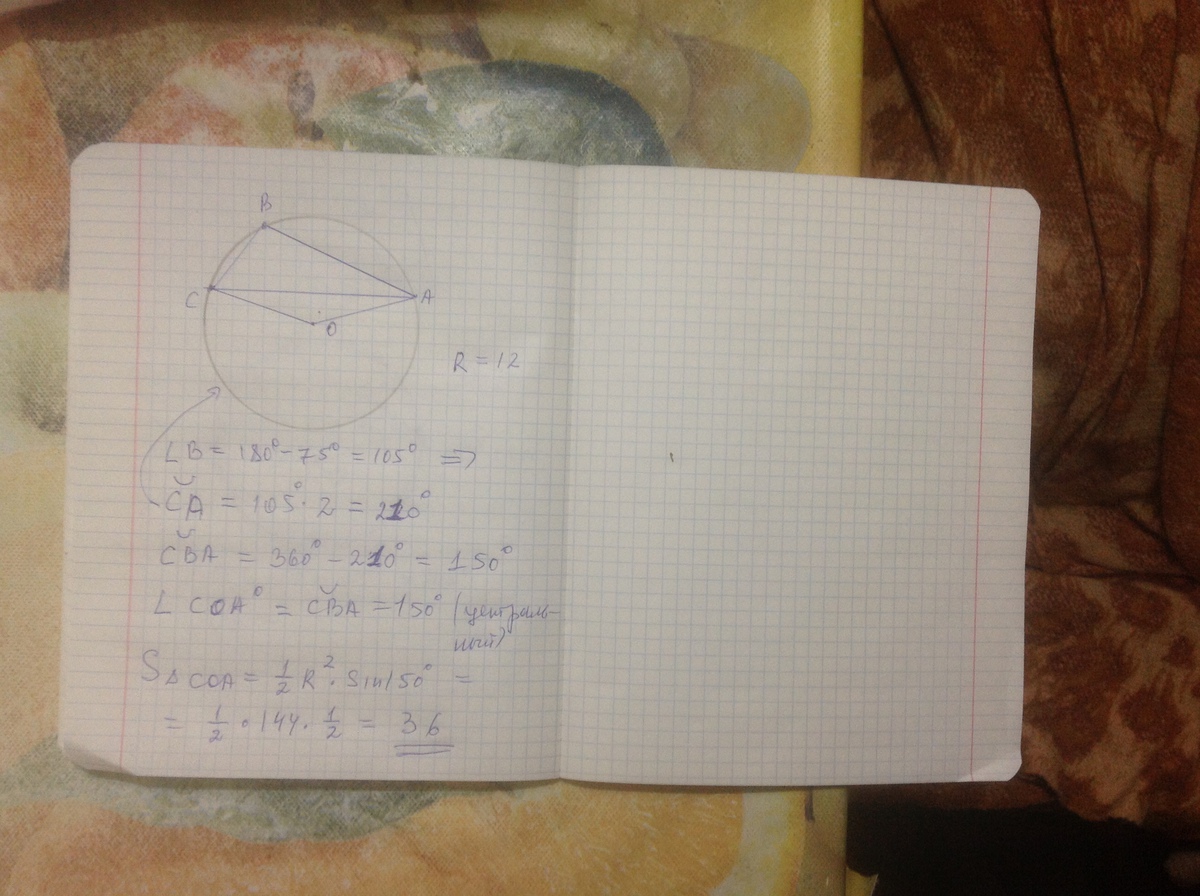 B
C
A
O
R = 12
∠B = 180° - 75° = 105° ⇒
C̆A = 105° · 2 = 210°
C̆BA = 360° - 210° = 150°
∠ COA° = C̆BA = 150° (централь-
ный)
S△COA = 1/2 R² · Sin150° =
= 1/2 · 144 · 1/2 = 36